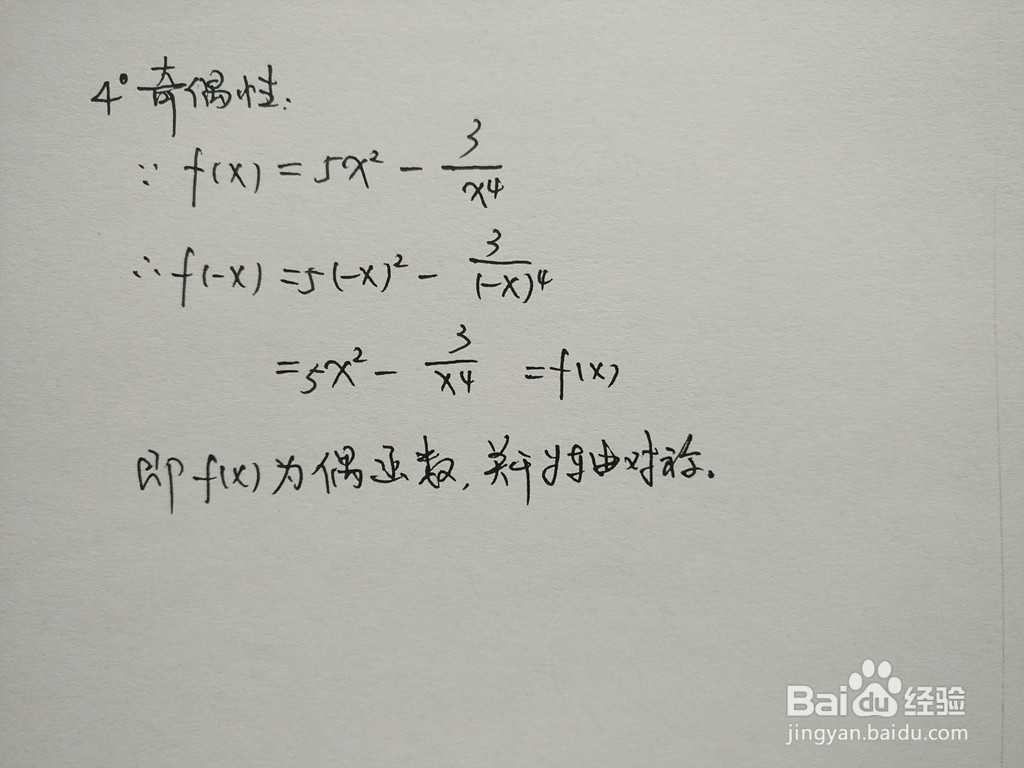 4° 奇偶性:
∵ f(x) = 5x² - 3/x⁴
∴ f(-x) = 5(-x)² - 3/(-x)⁴
= 5x² - 3/x⁴ = f(x)
即 f(x) 为偶函数, 关于y轴对称.
Baidu经验
jingyan.baidu.com